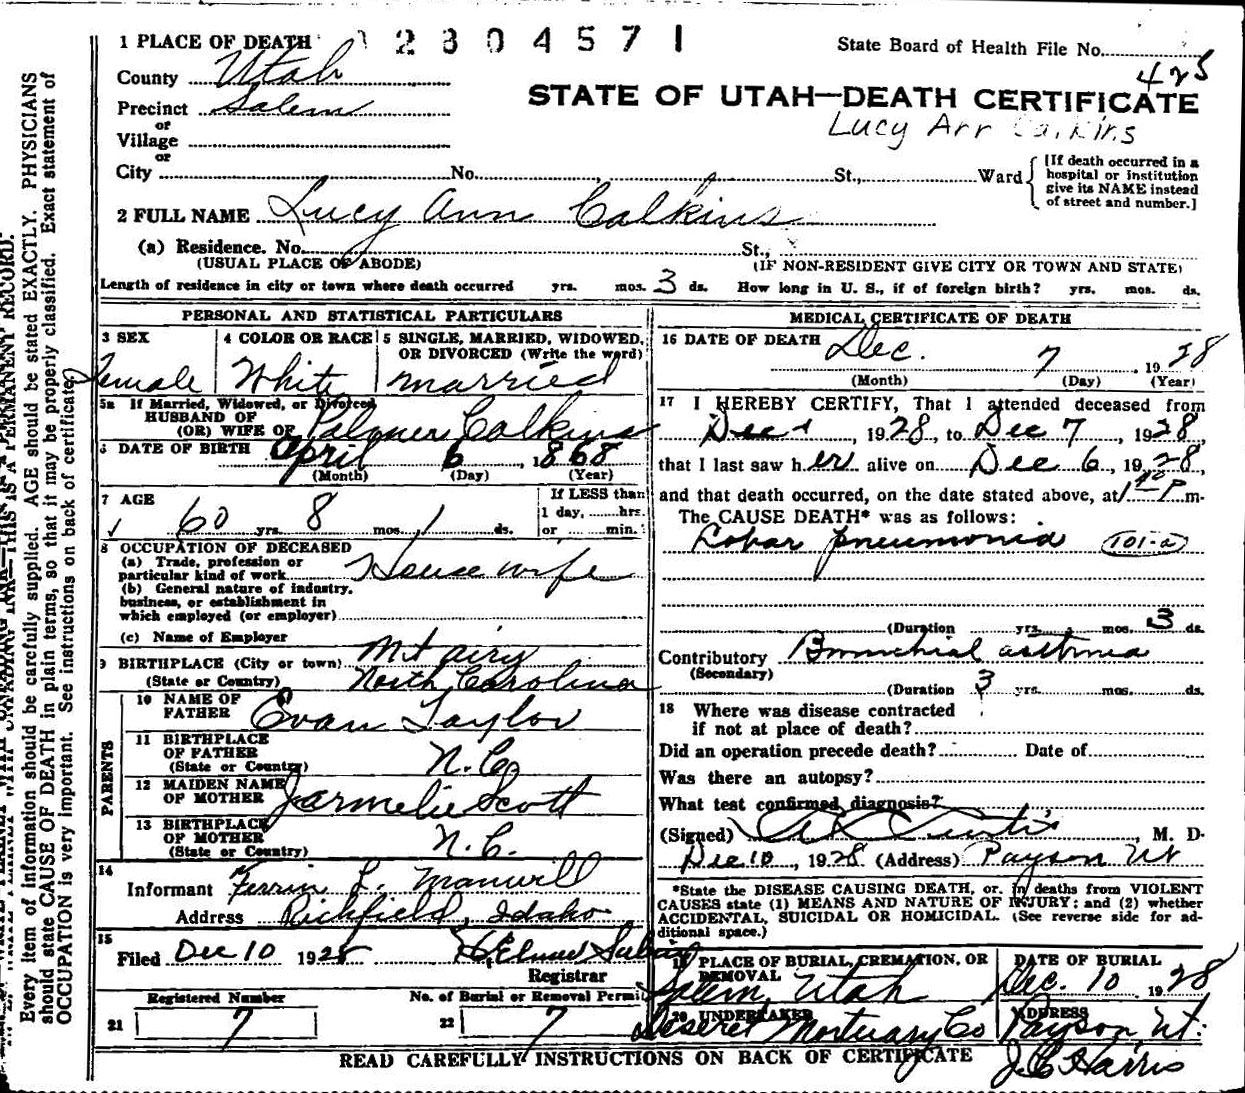 1 PLACE OF DEATH 2804571
State Board of Health File No.
425
County Utah
Precinct Salem
or
Village
or
STATE OF UTAH—DEATH CERTIFICATE
Lucy Calkins
City No. St., Ward
[If death occurred in a
hospital or institution
give its NAME instead
of street and number.]
2 FULL NAME Lucy Ann Calkins
(a) Residence. No. St.,
(USUAL PLACE OF ABODE) (IF NON-RESIDENT GIVE CITY OR TOWN AND STATE)
Length of residence in city or town where death occurred yrs. mos. 3 ds. How long in U. S., if of foreign birth? yrs. mos. ds.
PERSONAL AND STATISTICAL PARTICULARS
3 SEX
Female
4 COLOR OR RACE
White
5 SINGLE, MARRIED, WIDOWED,
OR DIVORCED (Write the word)
married
5a If Married, Widowed, or Divorced
HUSBAND OF
(OR) WIFE OF Palmer Calkins
6 DATE OF BIRTH April 6, 1868
(Month) (Day) (Year)
7 AGE
60 yrs. 8 mos. 1 ds.
If LESS than
1 day, hrs.
or min.
8 OCCUPATION OF DECEASED
(a) Trade, profession or
particular kind of work House wife
(b) General nature of industry,
business, or establishment in
which employed (or employer)
(c) Name of Employer
9 BIRTHPLACE (City or town) Mt airy
(State or Country) North Carolina
PARENTS
10 NAME OF
FATHER Evan Taylor
11 BIRTHPLACE
OF FATHER
(State or Country) N.C.
12 MAIDEN NAME
OF MOTHER Jarmelie Scott
13 BIRTHPLACE
OF MOTHER
(State or Country) N.C.
14
Informant Ferrin L. Manwill
Address Richfield, Idaho
15
Filed Dec 10 1928
Registrar
Registered Number
21 7
No. of Burial or Removal Permit
22 7
MEDICAL CERTIFICATE OF DEATH
16 DATE OF DEATH Dec. 7, 1928
(Month) (Day) (Year)
17 I HEREBY CERTIFY, That I attended deceased from
Dec 1, 1928, to Dec 7, 1928,
that I last saw her alive on Dec 6, 1928,
and that death occurred, on the date stated above, at 1 P m.
The CAUSE DEATH* was as follows:
Lobar pneumonia 101-a
(Duration yrs. mos. 3 ds.
Contributory Bronchial asthma
(Secondary)
(Duration 3 yrs. mos. ds.
18 Where was disease contracted
if not at place of death?
Did an operation precede death? Date of
Was there an autopsy?
What test confirmed diagnosis?
(Signed) , M. D.
Dec 10, 1928 (Address) Payson Ut
*State the DISEASE CAUSING DEATH, or, in deaths from VIOLENT
CAUSES state (1) MEANS AND NATURE OF INJURY; and (2) whether
ACCIDENTAL, SUICIDAL OR HOMICIDAL. (See reverse side for ad-
ditional space.)
19 PLACE OF BURIAL, CREMATION, OR
REMOVAL
Salem, Utah
DATE OF BURIAL
Dec. 10 1928
20 UNDERTAKER
Deseret Mortuary Co
ADDRESS
Payson Ut.
J C Harris
READ CAREFULLY INSTRUCTIONS ON BACK OF CERTIFICATE
Every item of information should be carefully supplied. AGE should be stated EXACTLY. PHYSICIANS
should state CAUSE OF DEATH in plain terms, so that it may be properly classified. Exact statement of
OCCUPATION is very important. See instructions on back of certificate.